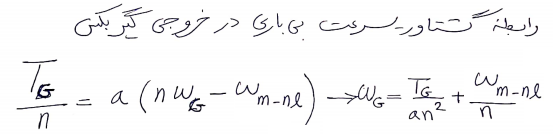 رابطه گشتاور-سرعت بی باری در خروجی گیربکس
T_G/n = a (n ω_G − ω_{m-nl}) → ω_G = T_G/an² + ω_{m-nl}/n